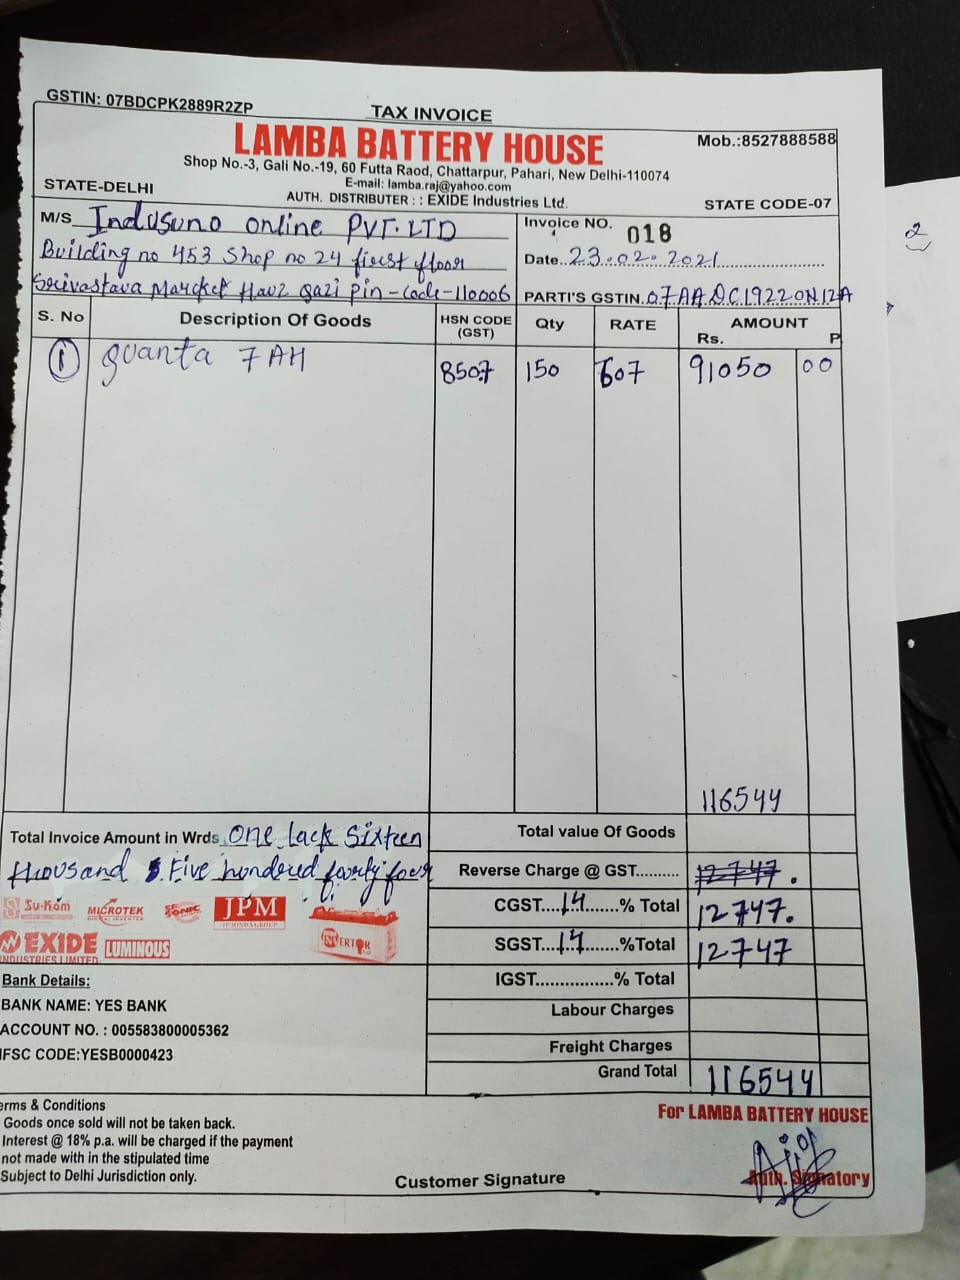 GSTIN: 07BDCPK2889R2ZP
TAX INVOICE
LAMBA BATTERY HOUSE
Mob.:8527888588
Shop No.-3, Gali No.-19, 60 Futta Raod, Chattarpur, Pahari, New Delhi-110074
E-mail: lamba.raj@yahoo.com
STATE-DELHI
AUTH. DISTRIBUTER : : EXIDE Industries Ltd.
STATE CODE-07
M/S Indusuno online PVT.LTD
Building no 453 Shop no 24 first floor
Srivastava Marcket Hauz Qazi Pin-code-110006
Invoice NO. 018
Date..23.02.2021
PARTI'S GSTIN.07AADC19220N1ZA
S. No Description Of Goods HSN CODE (GST) Qty RATE AMOUNT Rs. P
1 quanta 7AH 8507 150 607 91050 00
116544
Total Invoice Amount in Wrds One lack Sixteen
thousand Five hundered fourty four
Total value Of Goods
Reverse Charge @ GST..........
CGST....14.......% Total 12747.
SGST....14......%Total 12747
IGST................% Total
Labour Charges
Freight Charges
Grand Total 116544
Su-Kam MICROTEK SF SONIC JPM
JPMINDAGROUP
EXIDE
INDUSTRIES LIMITED
LUMINOUS
INVERTOR
Bank Details:
BANK NAME: YES BANK
ACCOUNT NO. : 005583800005362
IFSC CODE:YESB0000423
erms & Conditions
Goods once sold will not be taken back.
Interest @ 18% p.a. will be charged if the payment
not made with in the stipulated time
Subject to Delhi Jurisdiction only.
Customer Signature
For LAMBA BATTERY HOUSE
Auth. Signatory
2